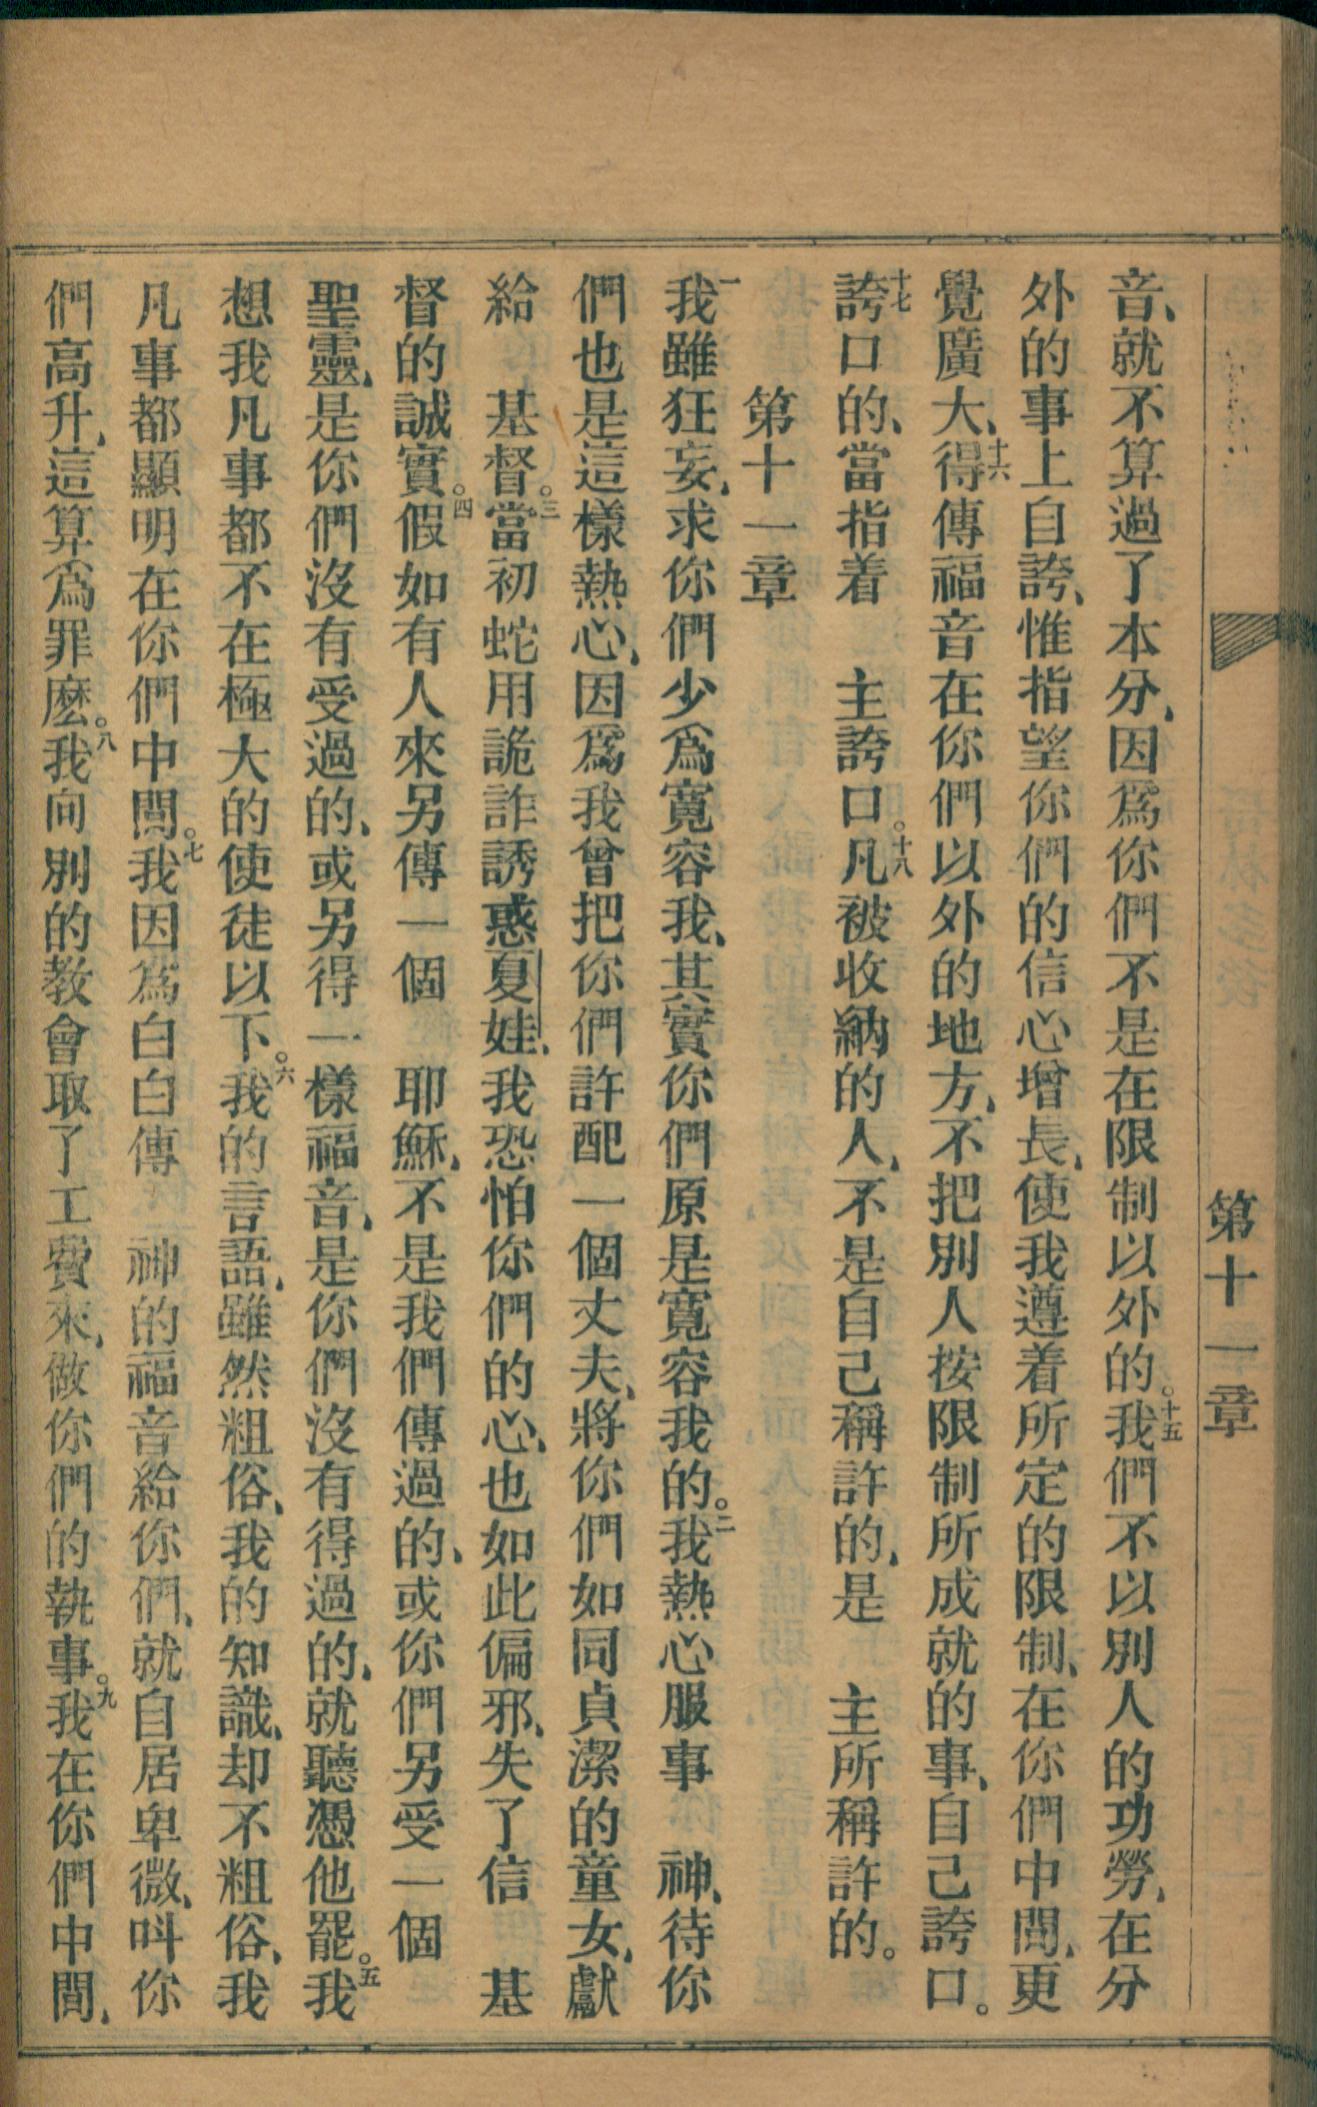 第十一章
音、就不算過了本分、因爲你們不是在限制以外的。十五我們不以別人的功勞、在分
外的事上自誇、惟指望你們的信心增長、使我遵着所定的限制、在你們中間、更
覺廣大、十六得傳福音在你們以外的地方、不把別人按限制所成就的事、自己誇口。
十七誇口的、當指着　主誇口。十八凡被收納的人、不是自己稱許的、是　主所稱許的。
第十一章
一我雖狂妄、求你們少爲寬容我、其實你們原是寬容我的。二我熱心服事　神、待你
們也是這樣熱心、因爲我曾把你們許配一個丈夫、將你們如同貞潔的童女、獻
給　基督。三當初蛇用詭詐誘惑夏娃、我恐怕你們的心、也如此偏邪、失了信　基
督的誠實。四假如有人來另傳一個　耶穌、不是我們傳過的、或你們另受一個
聖靈、是你們沒有受過的、或另得一樣福音、是你們沒有得過的、就聽憑他罷。五我
想我凡事都不在極大的使徒以下。六我的言語、雖然粗俗、我的知識、却不粗俗、我
凡事都顯明在你們中間。七我因爲白白傳　神的福音給你們、就自居卑微、呌你
們高升、這算爲罪麽。八我向別的教會取了工費來、做你們的執事。九我在你們中間、